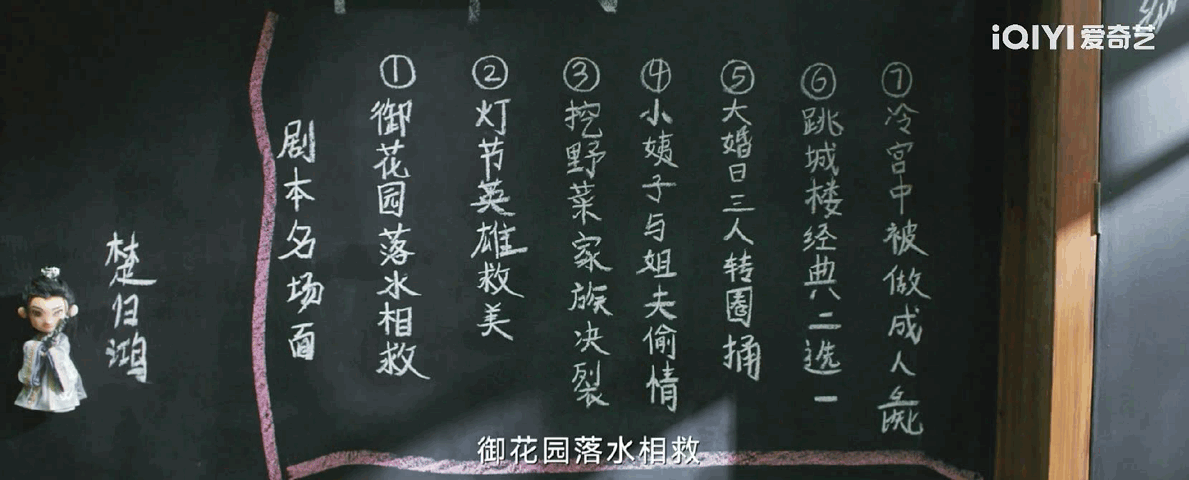 iQIYI 爱奇艺
楚归鸿
剧本名场面
①御花园落水相救
②灯节英雄救美
③挖野菜家族决裂
④小姨子与姐夫偷情
⑤大婚日三人转圈捅
⑥跳城楼经典二选一
⑦冷宫中被做成人彘
御花园落水相救